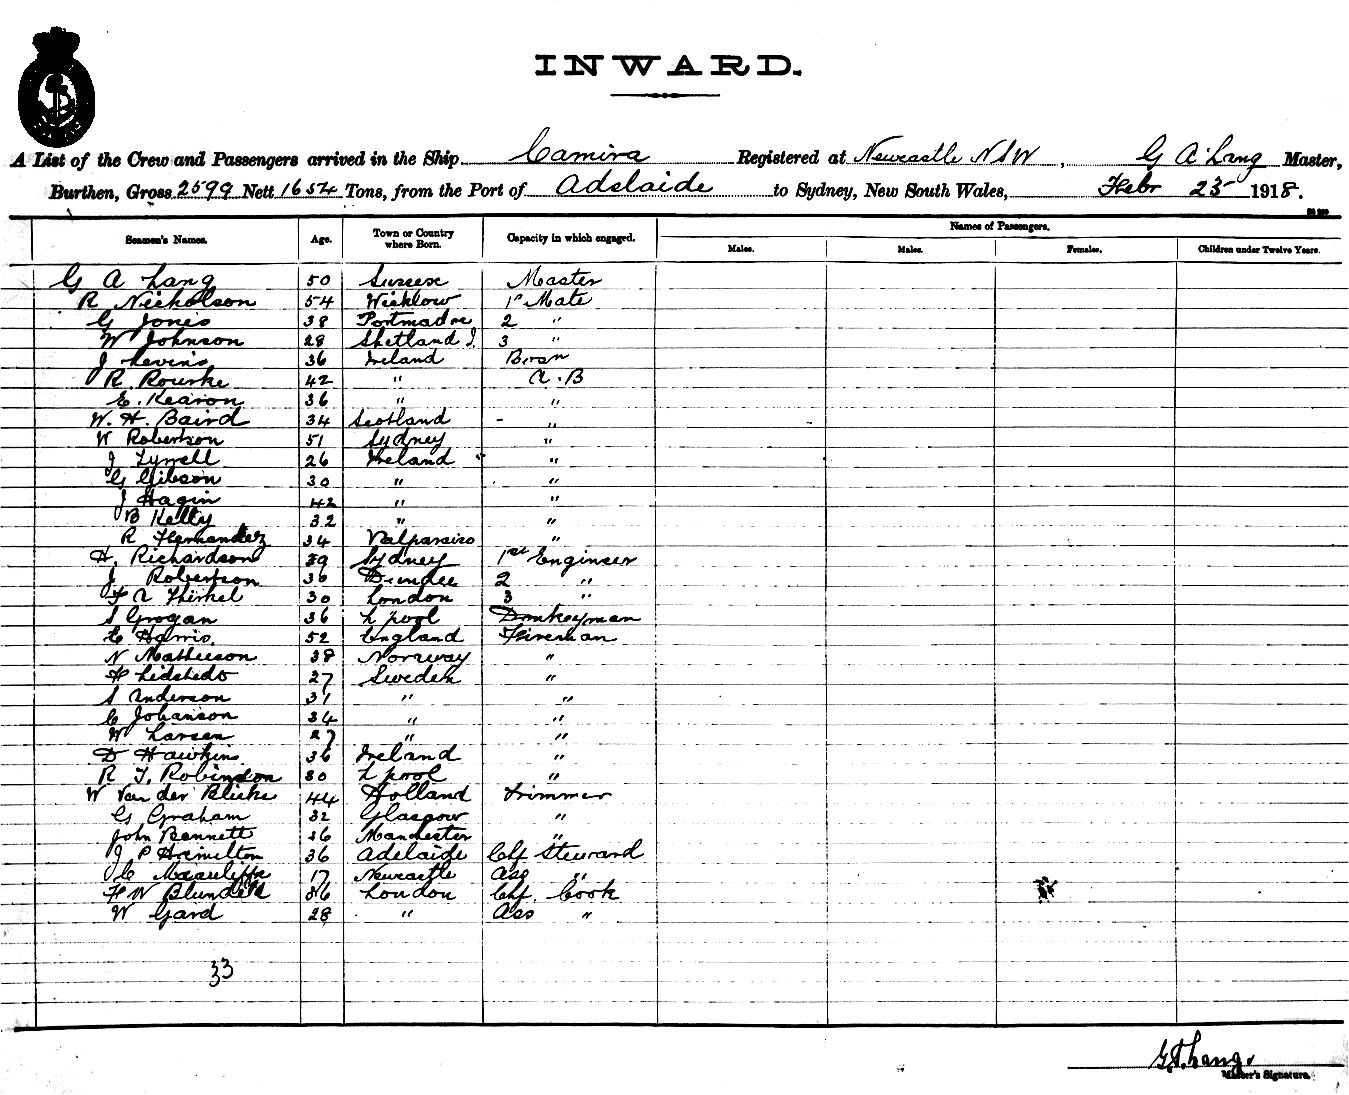 INWARD.
A List of the Crew and Passengers arrived in the Ship Camira Registered at Newcastle NSW, G A Lang Master,
Burthen, Gross 2599 Nett 1654 Tons, from the Port of Adelaide to Sydney, New South Wales, Febr 25 1918.
Names of Passengers.
Seamen's Names. Age. Town or Country where Born. Capacity in which engaged. Males. Males. Females. Children under Twelve Years.
G A Lang 50 Sussex Master
R Nicholson 54 Wicklow 1st Mate
G Jones 38 Portmadoc 2 "
W Johnson 28 Shetland I. 3 "
J Levins 36 Ireland Bosn
R Rourke 42 " A.B
E. Kearon 36 " "
W. H. Baird 34 Scotland - "
W Robertson 51 Sydney "
J Tyrrell 26 Ireland "
G Gibson 30 " "
J Hagin 42 " "
B Kelly 32 " "
R Hernandez 34 Valparaiso "
H. Richardson 39 Sydney 1st Engineer
J Robertson 36 Dundee 2 "
F A Thirkel 30 London 3 "
S Grogan 36 L pool Donkeyman
C Harris 52 England Fireman
N Matheeson 38 Norway "
27 Sweden "
S Anderson 31 " "
C Johanson 34 " "
W Larsen 27 " "
D Hawkins 36 Ireland "
R T. Robinson 30 L pool "
W Van der 44 Holland Trimmer
G Graham 32 Glasgow "
John Bennett 26 Manchester "
J P Hamilton 36 Adelaide Chf Steward
C 17 Newcastle Ass "
F W Blundell 36 London Chf. Cook
W Gard 28 " Ass "
33
G.A. Lang.
Master's Signature.